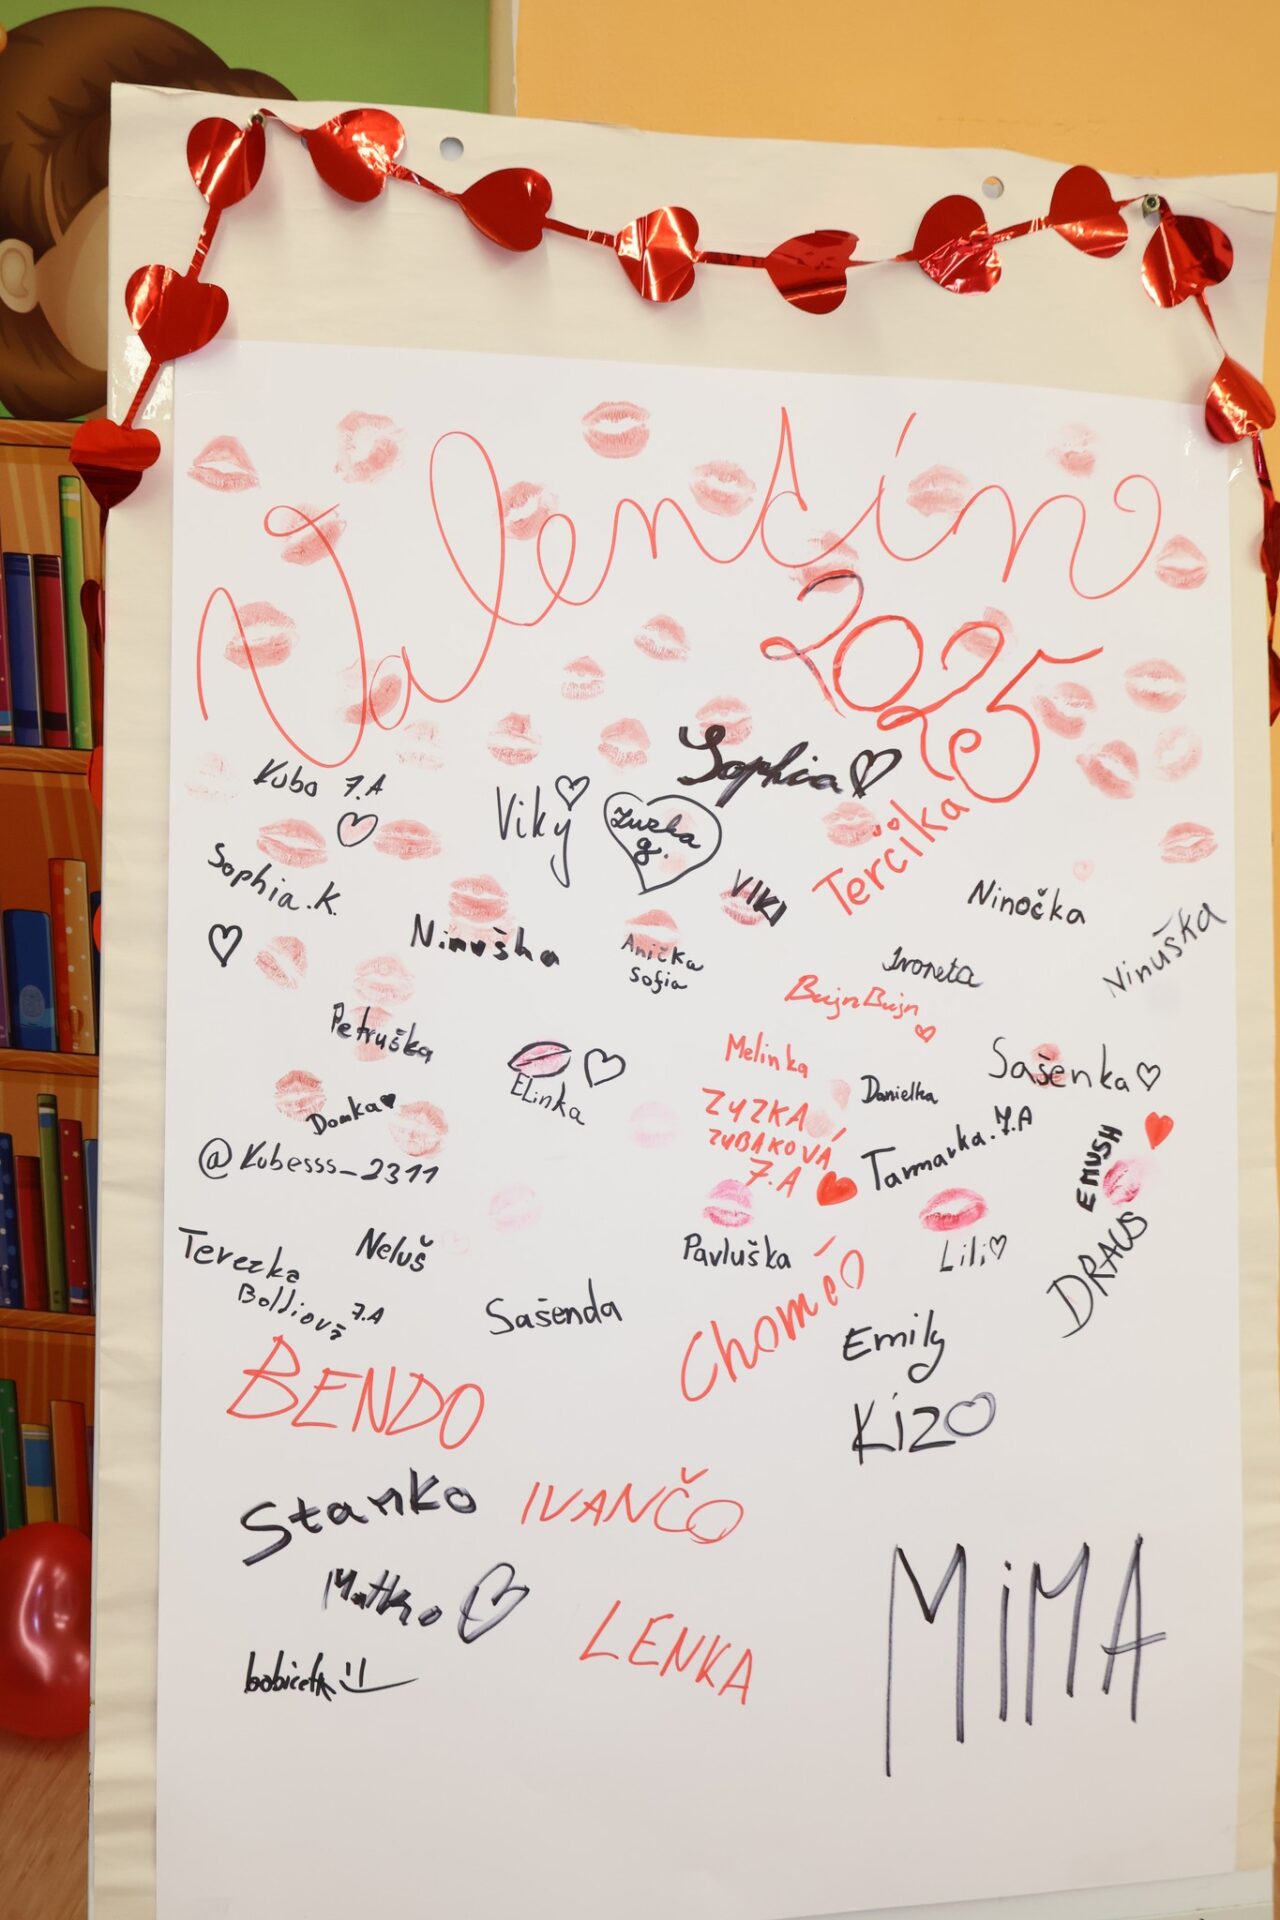 Valentín
2025
Sophia
Kubo 7.A
Viky
Zuzka
g.
Terčika
Sophia.K.
VIKI
Ninočka
Ninuška
Ninuška
Anička
Sofia
Ivoneta
BujnBujn
Petruška
Melinka
Sašenka
Elinka
Danielka
Domka
ZUZKA
ZUBAKOVÁ
7.A
Tamarka.7.A
EMUSH
@Kubesss_2311
DRAUS
Terezka
7.A
Neluš
Pavluška
Lili
Sašenda
Chomé
Emily
BENDO
KIZO
Stanko
IVANČO
MiMA
Matko
LENKA